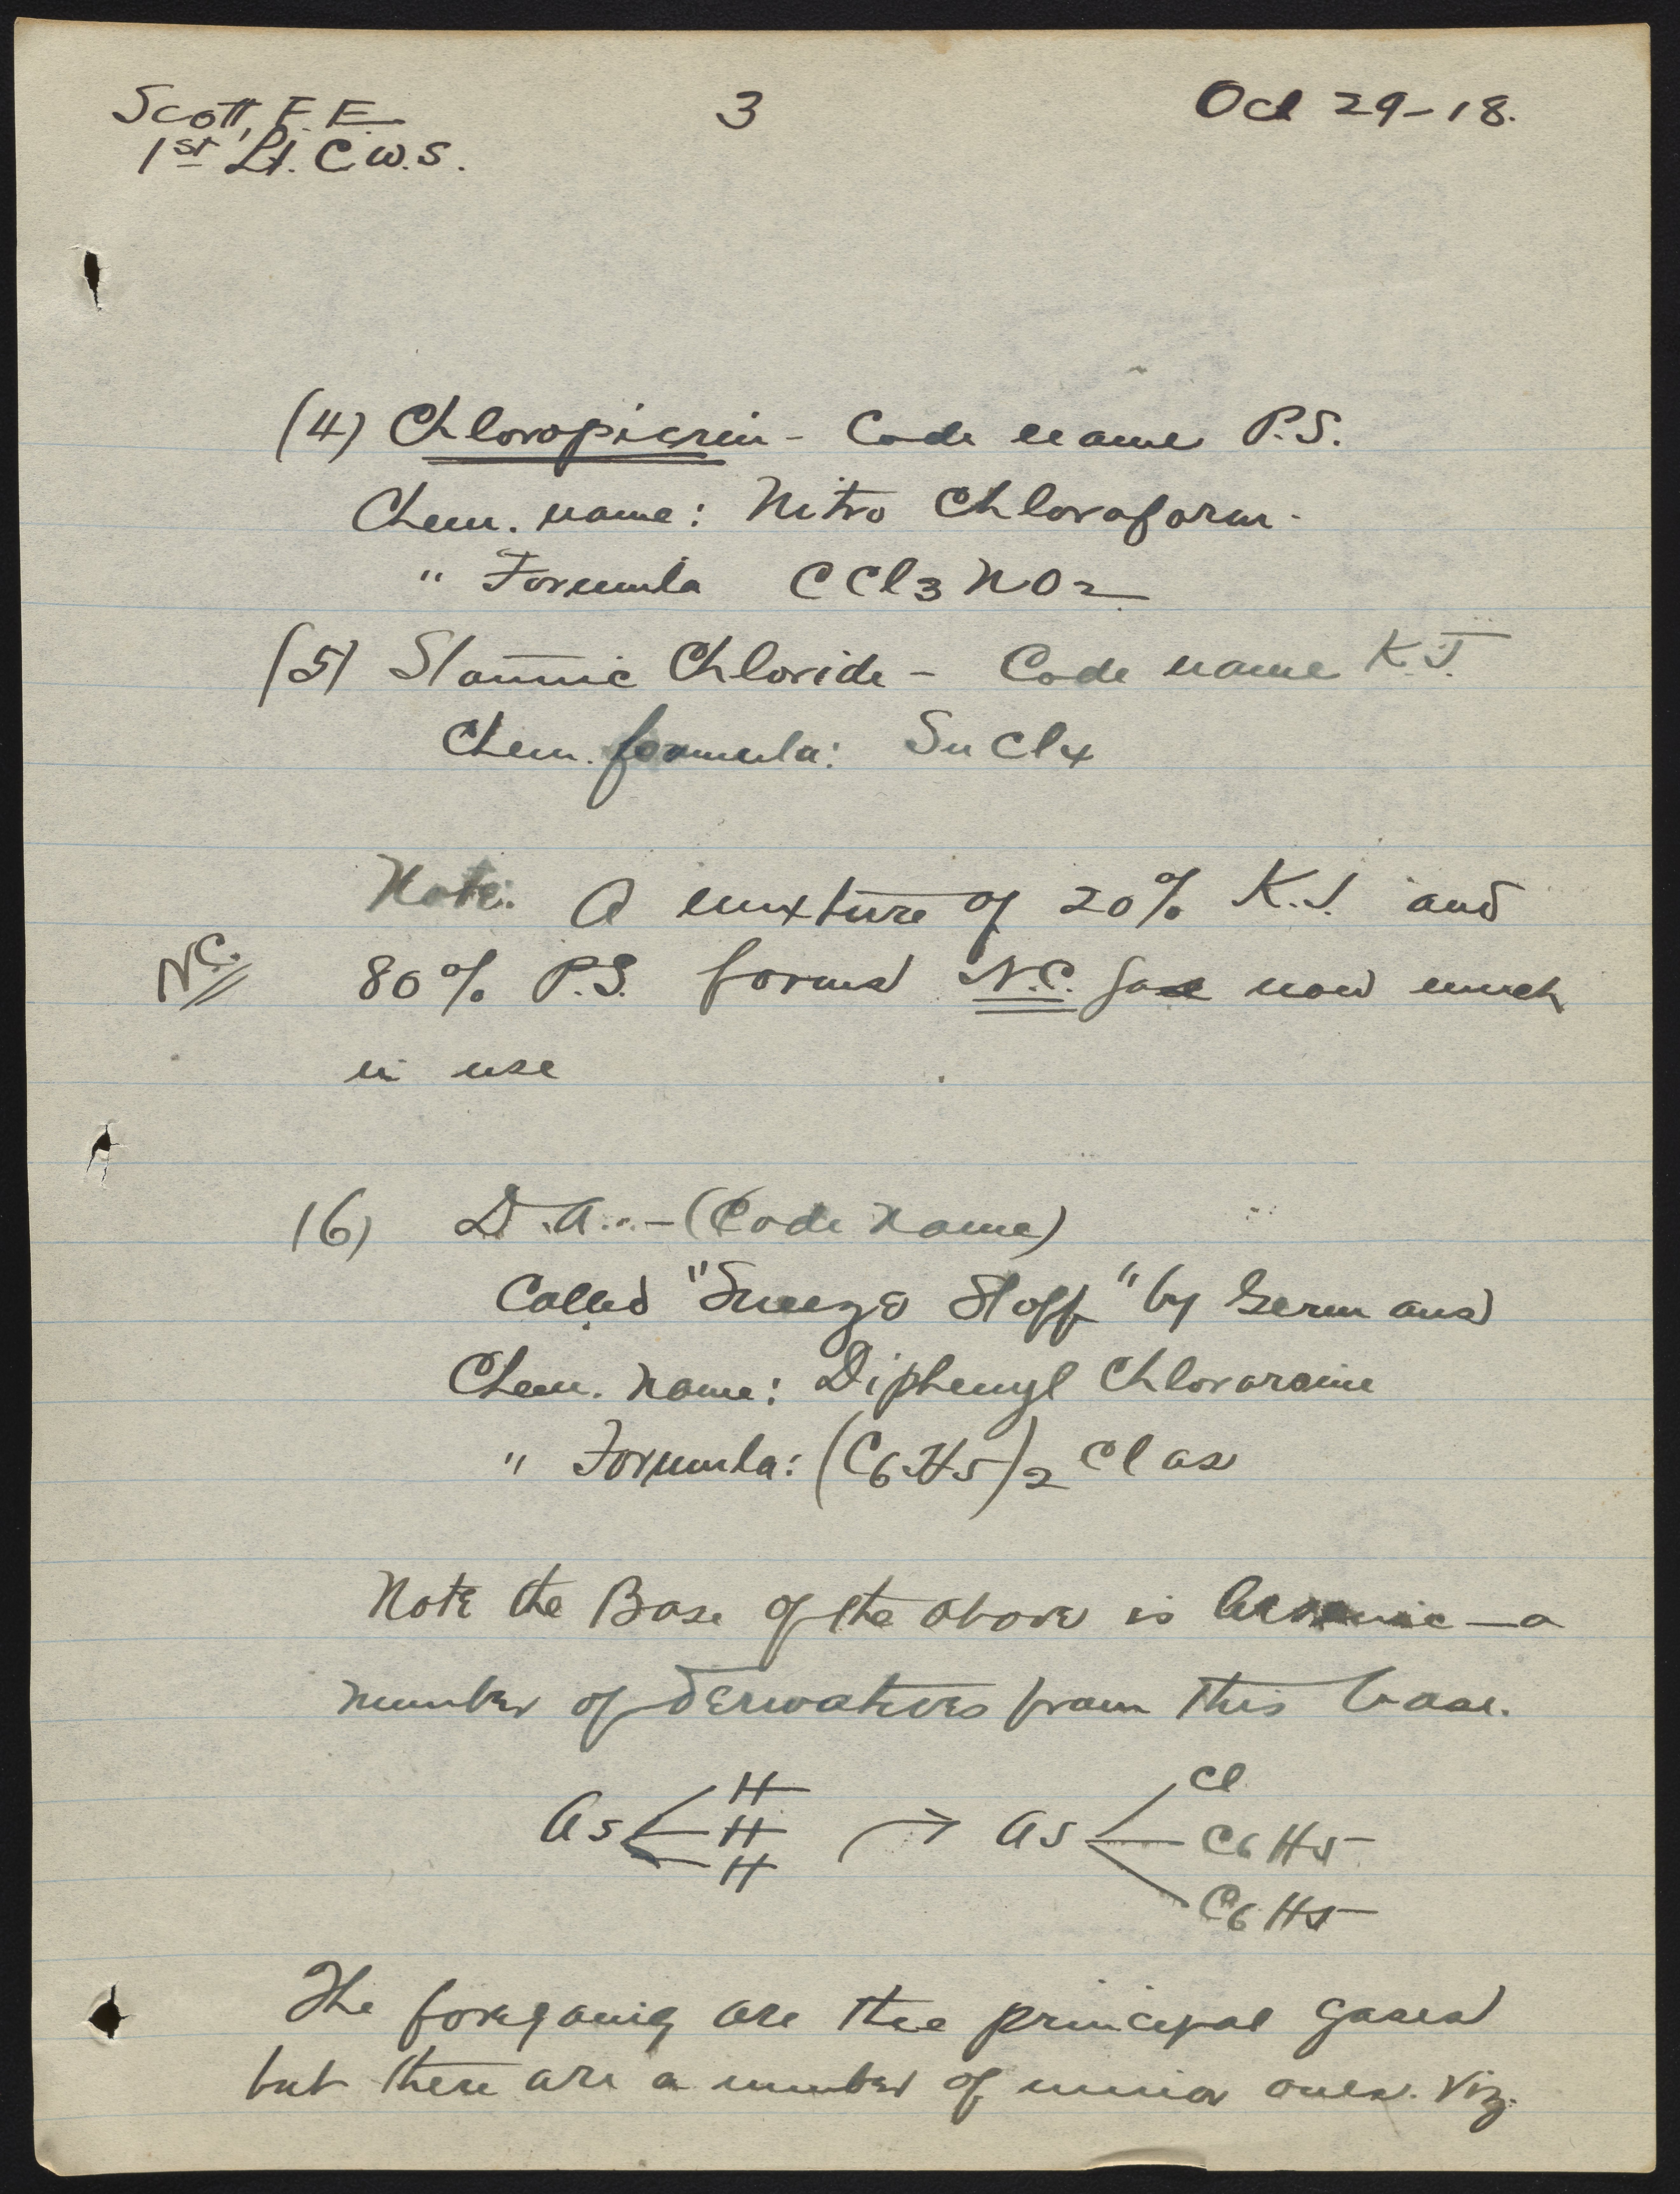 Scott, F. E. 3 Oct 29-18.
1st Lt. C.W.S.
(4) Chloropicrin - Code name P.S.
Chem. name: Nitro Chloroform.
" Formula CCl3NO2
(5) Stannic Chloride - Code name K.J.
Chem. formula: SnCl4
Note: A mixture of 20% K.J. and
N.C. 80% P.S. forms N.C. gas now much
in use
(6) D.A. - (Code Name)
Called "Sneeze Stoff" by Germans
Chem. Name: Diphenyl Chlorarsine
" Formula: (C6H5)2 Cl As
Note the Base of the above is Arsenic - a
number of derivatives from this base.
As H H H → As Cl C6H5 C6H5
The foregoing are the principal gases
but there are a number of minor ones. Viz: